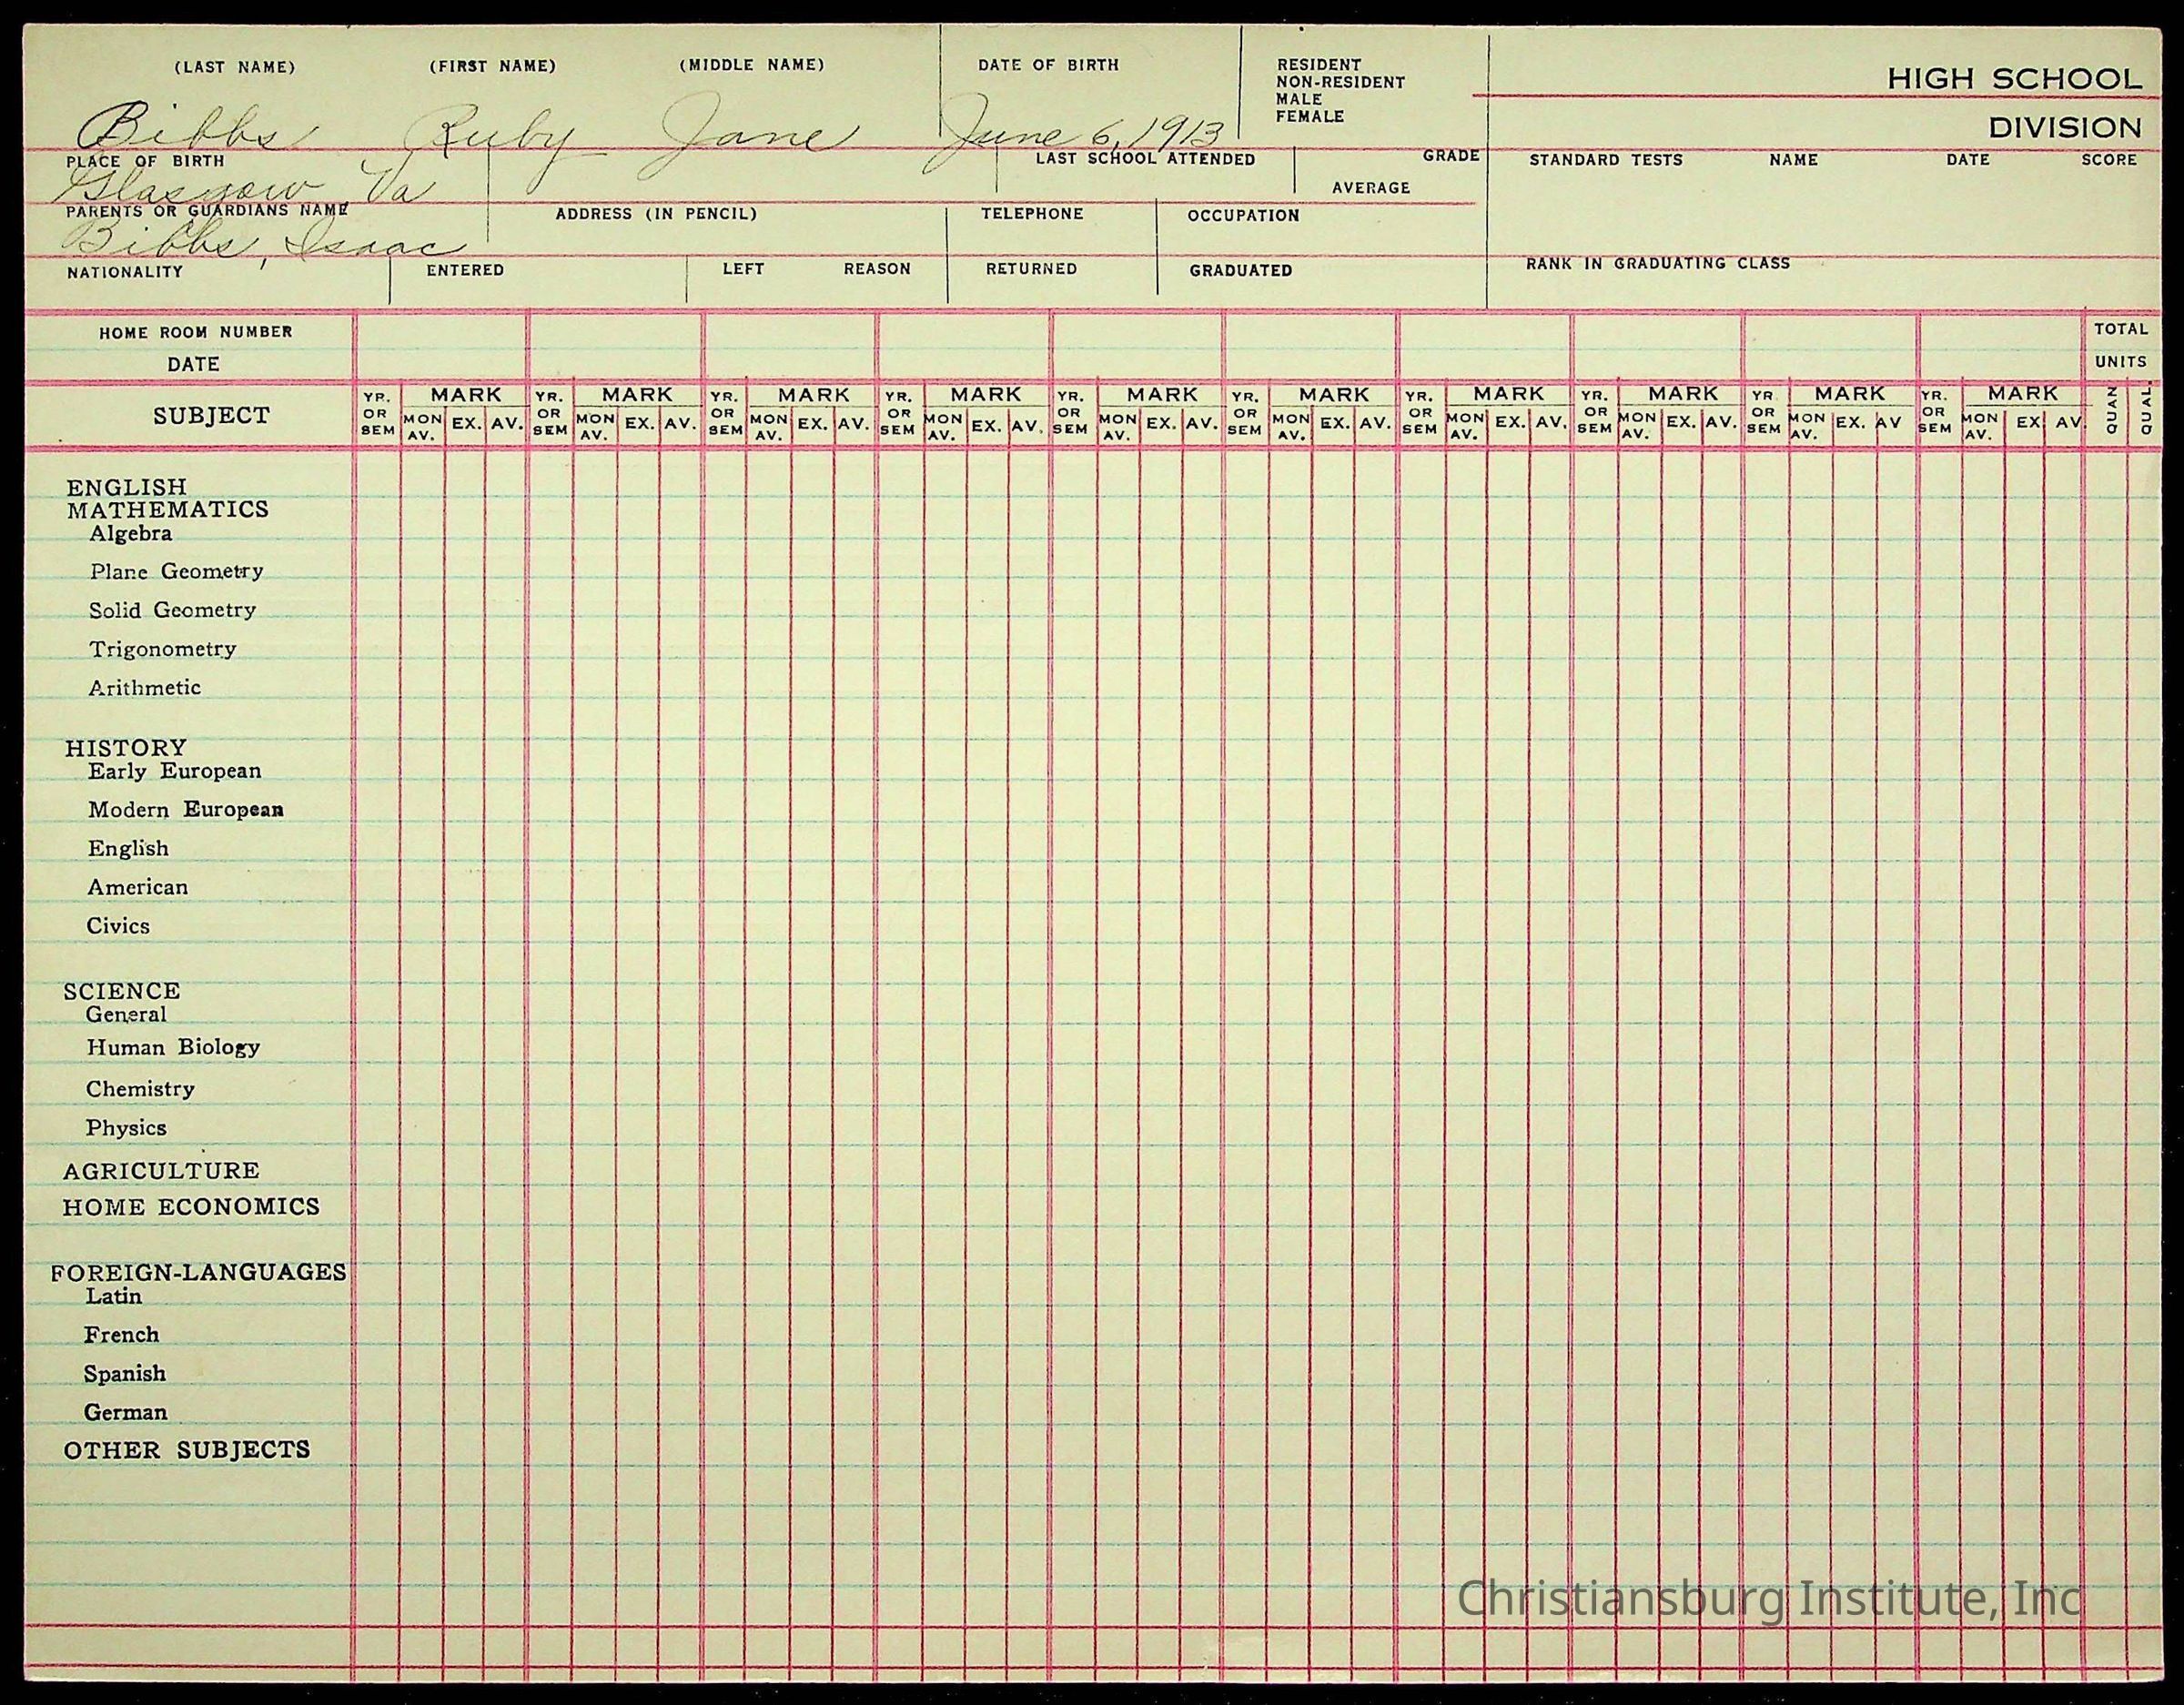 (LAST NAME) (FIRST NAME) (MIDDLE NAME) DATE OF BIRTH RESIDENT
NON-RESIDENT
MALE
FEMALE
HIGH SCHOOL
DIVISION
Bibbs Ruby Jane June 6, 1913
PLACE OF BIRTH LAST SCHOOL ATTENDED GRADE STANDARD TESTS NAME DATE SCORE
Glasgow Va AVERAGE
PARENTS OR GUARDIANS NAME ADDRESS (IN PENCIL) TELEPHONE OCCUPATION
Bibbs, Isaac
NATIONALITY ENTERED LEFT REASON RETURNED GRADUATED RANK IN GRADUATING CLASS
HOME ROOM NUMBER TOTAL
DATE UNITS
SUBJECT YR. OR SEM MARK MON AV. EX. AV. YR. OR SEM MARK MON AV. EX. AV. YR. OR SEM MARK MON AV. EX. AV. YR. OR SEM MARK MON AV. EX. AV. YR. OR SEM MARK MON AV. EX. AV. YR. OR SEM MARK MON AV. EX. AV. YR. OR SEM MARK MON AV. EX. AV. YR. OR SEM MARK MON AV. EX. AV. YR OR SEM MARK MON AV. EX. AV YR. OR SEM MARK MON AV. EX AV. QUAN QUAL.
ENGLISH
MATHEMATICS
Algebra
Plane Geometry
Solid Geometry
Trigonometry
Arithmetic
HISTORY
Early European
Modern European
English
American
Civics
SCIENCE
General
Human Biology
Chemistry
Physics
AGRICULTURE
HOME ECONOMICS
FOREIGN-LANGUAGES
Latin
French
Spanish
German
OTHER SUBJECTS
Christiansburg Institute, Inc